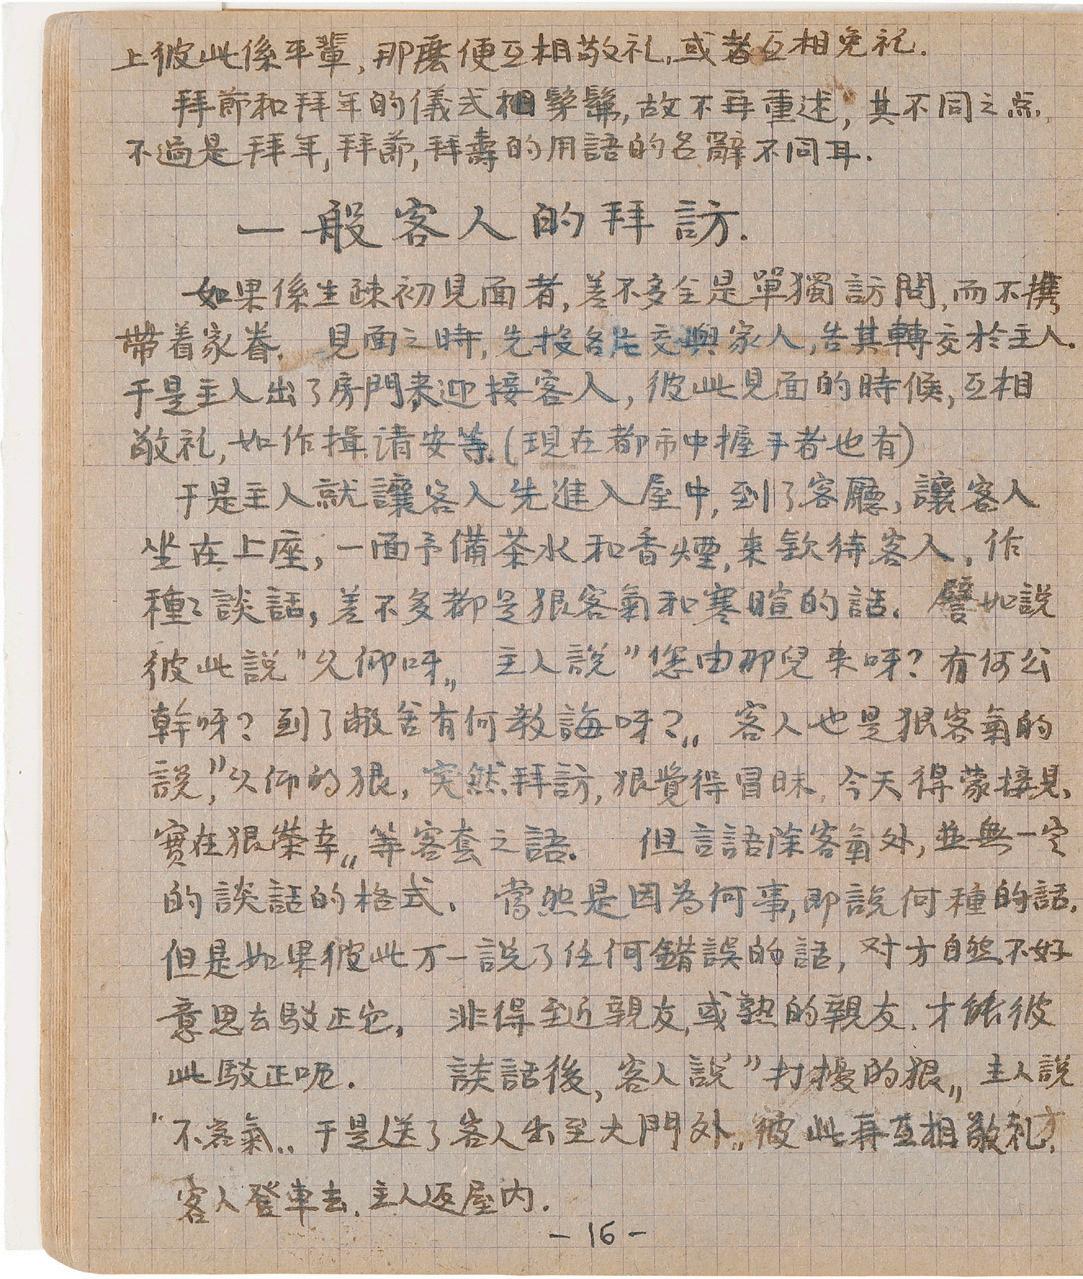 上彼此係平輩,那麽便互相敬礼,或者互相免礼.
拜節和拜年的儀式相髣髴,故不再重述,其不同之点,
不過是拜年,拜節,拜壽的用語的名辭不同耳.
一般客人的拜訪.
如果係生疎初見面者,差不多全是單獨訪問,而不携
帶着家眷. 見面之時,先投名片交與家人,告其轉交於主人.
于是主人出了房門来迎接客人,彼此見面的時候,互相
敬礼,如作揖请安等.(現在都市中握手者也有)
于是主人就讓客人先進入屋中,到了客廳,讓客人
坐在上座,一面予備茶水和香煙,来欵待客人,作
種〻談話,差不多都是狠客氣和寒暄的話. 譬如說
彼此說"久仰呀„ 主人說"您由那兒来呀?有何公
幹呀?到了敝舍有何教誨呀?„ 客人也是狠客氣的
說,"久仰的狠,突然拜訪,狠覺得冒昧,今天得蒙接見,
實在狠榮幸„等客套之語. 但言語除客氣外,並無一定
的談話的格式. 當然是因為何事,即說何種的話.
但是如果彼此万一說了任何錯誤的話,对方自然不好
意思去駁正它, 非得至近親友,或熟的親友.才能彼
此駁正呢. 談話後,客人說"打擾的狠„ 主人說
"不客氣„于是送了客人出至大門外,彼此再互相敬礼,方
客人登車去,主人返屋内.
-16-